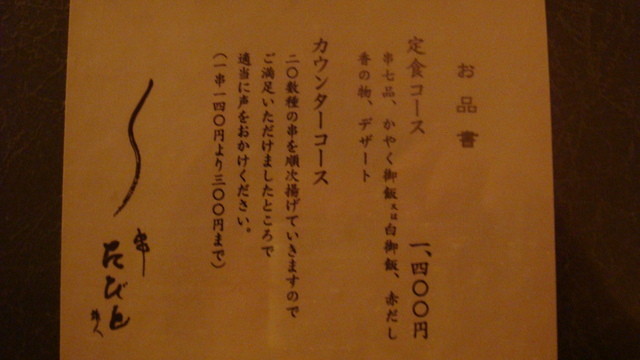 お品書
定食コース 一、四〇〇円
串七品、かやく御飯又は白御飯、赤だし
香の物、デザート
カウンターコース
二〇数種の串を順次揚げていきますので
ご満足いただけましたところで
適当に声をおかけください。
(一串一四〇円より三〇〇円まで)
串
たびと